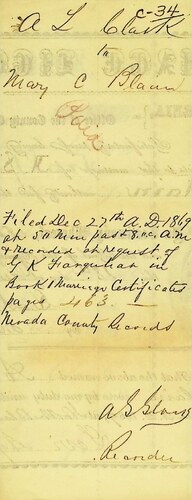 C-34
A L Clark
to
Mary C
Paid
Filed Dec 27th A.D. 1869
at 50 Min past 8 o,c, A.M
& Recorded at request of
G K Farquhar in
Book 1 Marriage Certificates
pages 463
Nevada County Records
Recorder